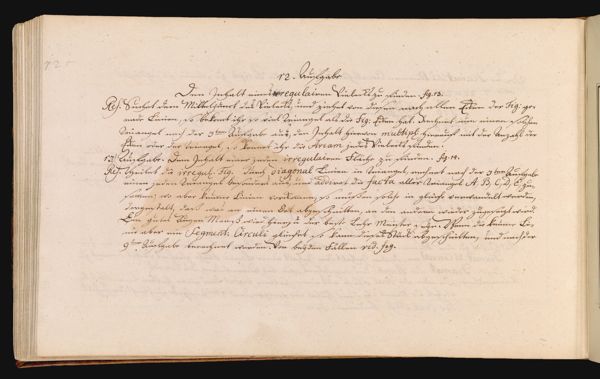 12. Aufgabe.
Den Inhalt eines regulairen Vielecks zu finden. fig. 13.
Res. Suchet den Mittelpunct des Vielecks, und ziehet von diesem nach allen Ecken der Fig: ge-
rade Linien, so bekomt ihr so viel Triangel als die Fig: Ecken hat. Suchet nun einen solchen
Triangel nach der Aufgabe aus, den Inhalt hievon multipl: hernach mit der Anzahl der
Ecken oder der Triangel, so komt ihr die Aream jedes Vielecks finden.
13. Aufgabe. Den Inhalt einer jeden irregulairen Fläche zu finden. fig. 14.
Res. Theilet die irregul. Fig. durch Diagonal Linien in Triangel, rechnet nach der 9ten Aufgabe
einen jeden Triangel besonders aus, und addiret die facta aller Triangel A. B. C, D, E, zu-
sammen; wo aber krume Linien vorkomen, so müßen solche in gleiche verwandelt werden,
dergestalt, daß was an einem Ort abgeschnitten, an dem andern wieder zugesezt wird.
Ein gutes Augen Maas, ist hierzu der beste Lehr Meister. die krume Li-
nie aber ein Segment. Circuli so kann dieses Stück abgeschnitten, und nach der
9ten Aufgabe berechnet werden. Von beyden Fällen vid. fig.